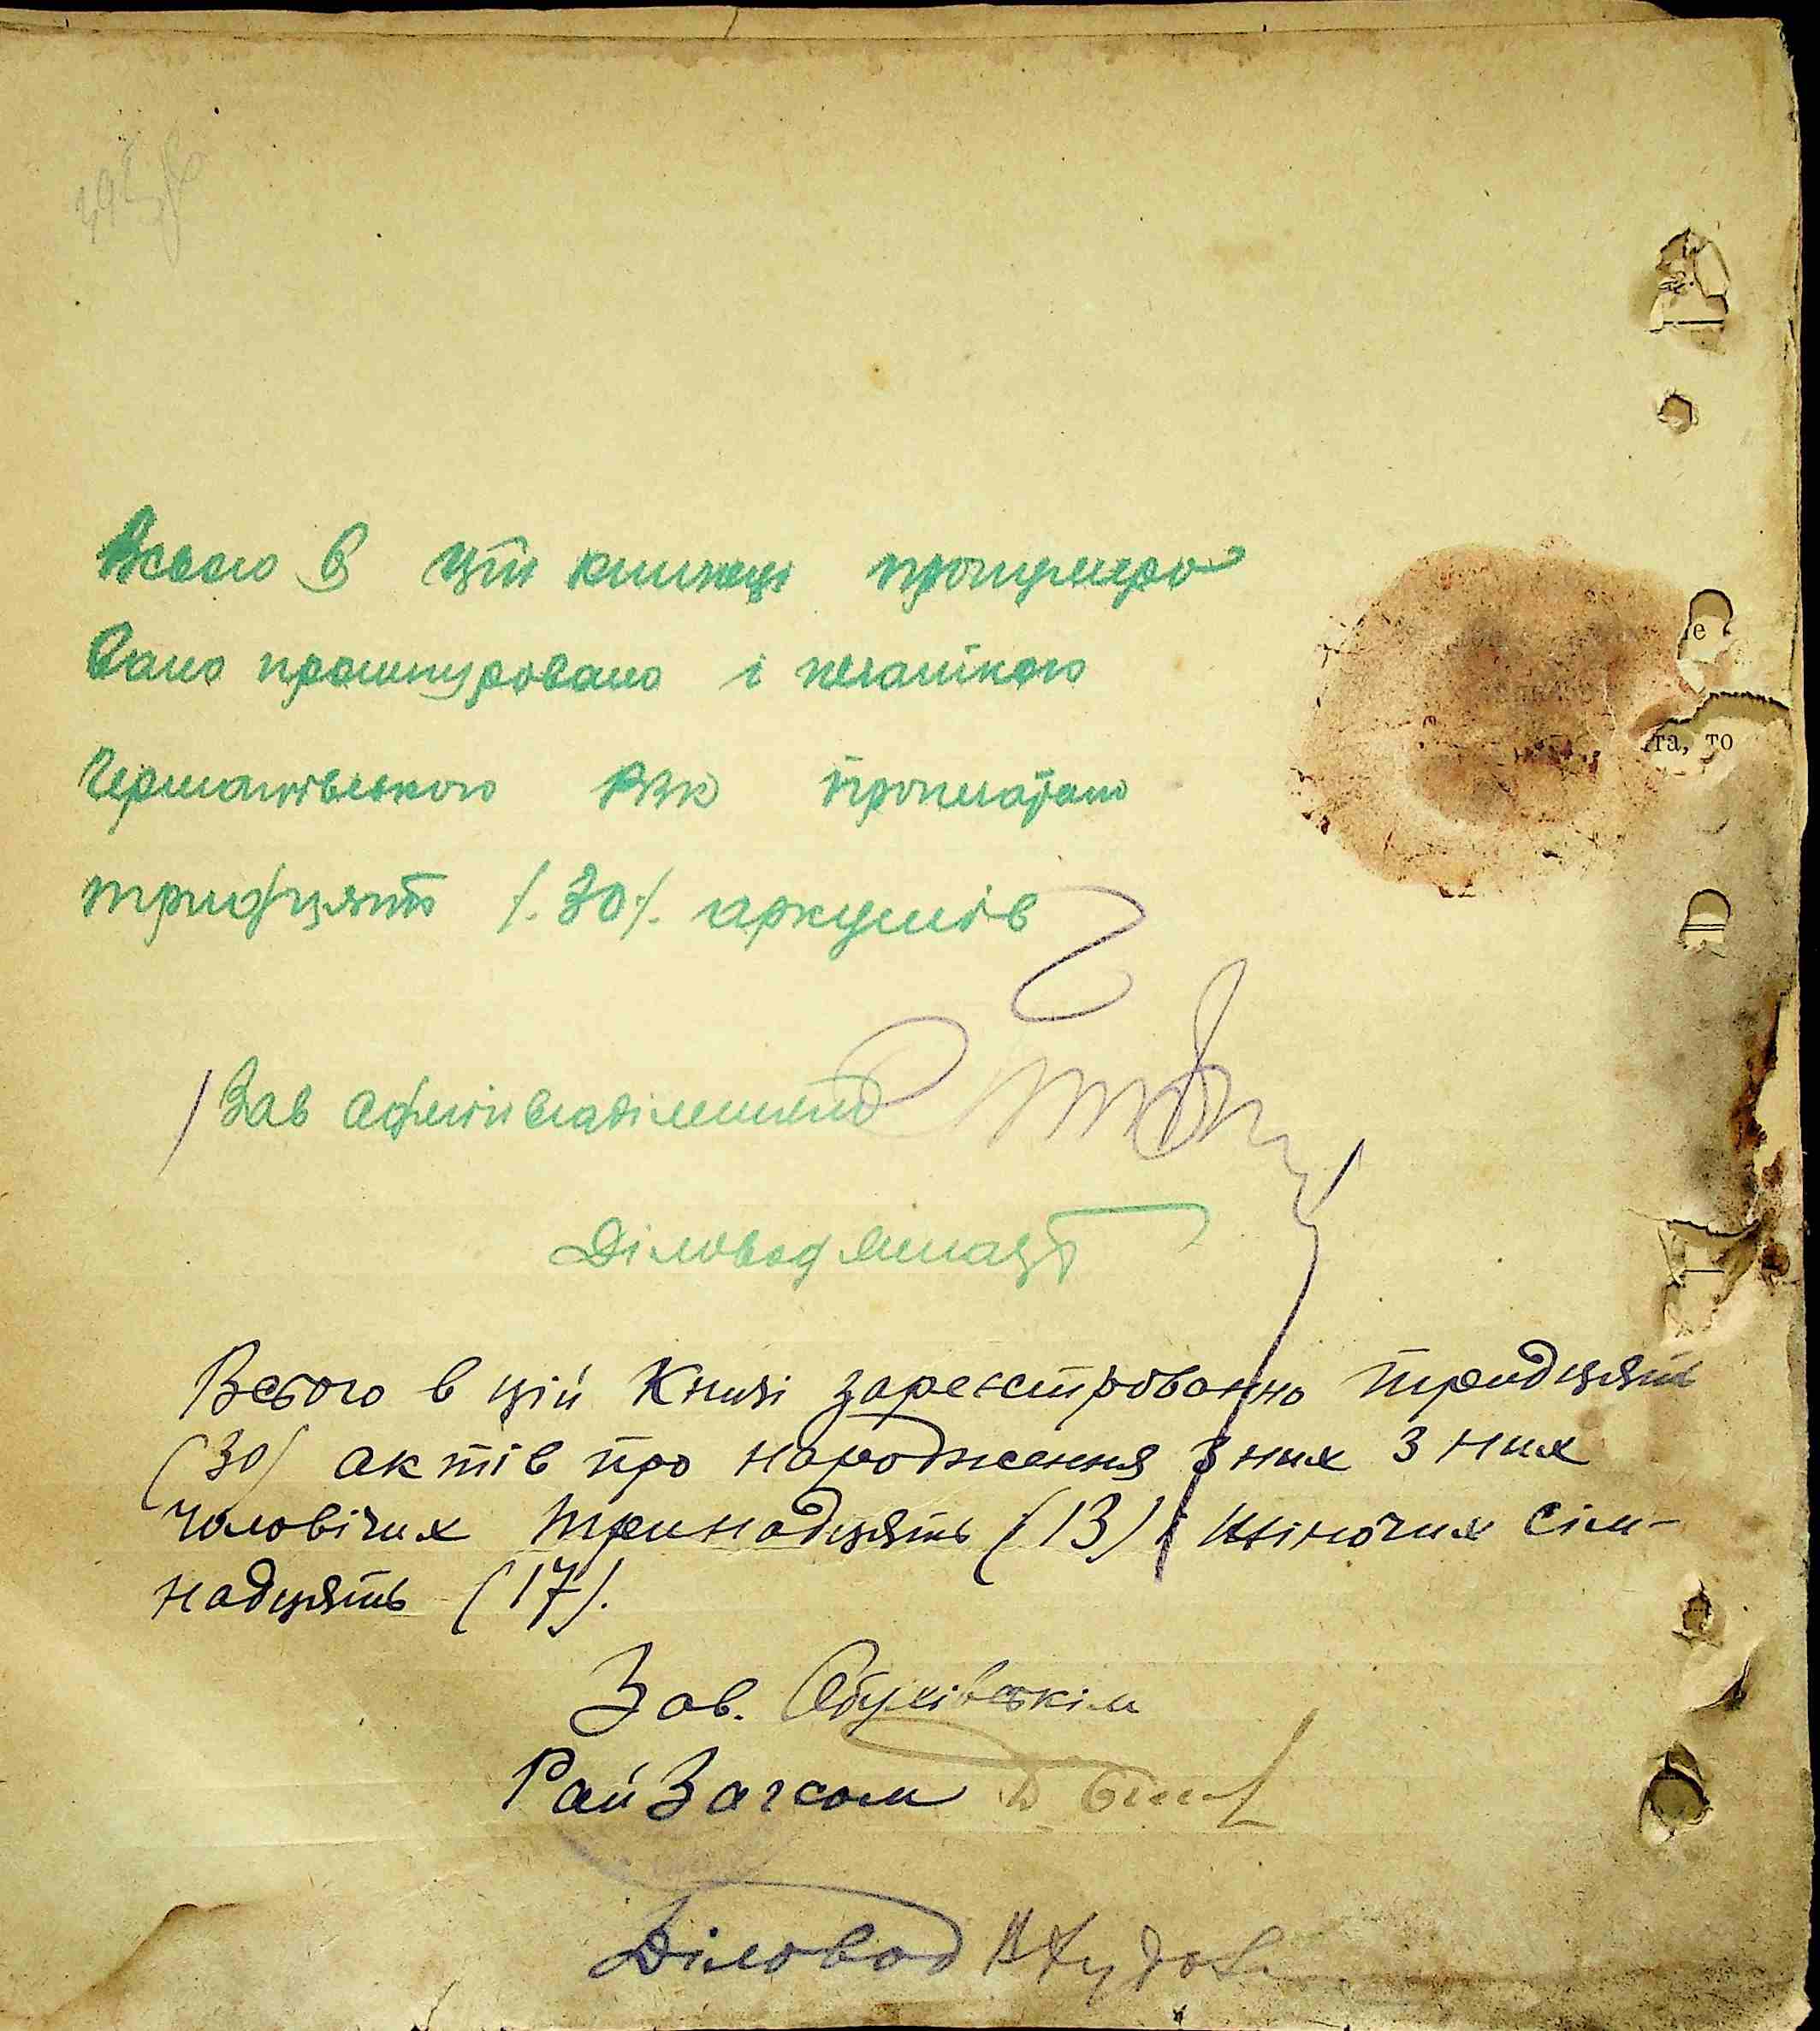 Всього в цій книжці пронумеро
вано прошнуровано і печаткою
Германівського РВК пропечатано
тридцять /.30/. аркушів
Зав адмін
Діловод
Всього в цій Книзі зареєстрованно тридцять
(30) актів про народження з них з них
чоловічих тринадцять (13) і жіночих сім-
надцять (17).
Зав. Обухівськім
РайЗагсом
Діловод
е
та, то